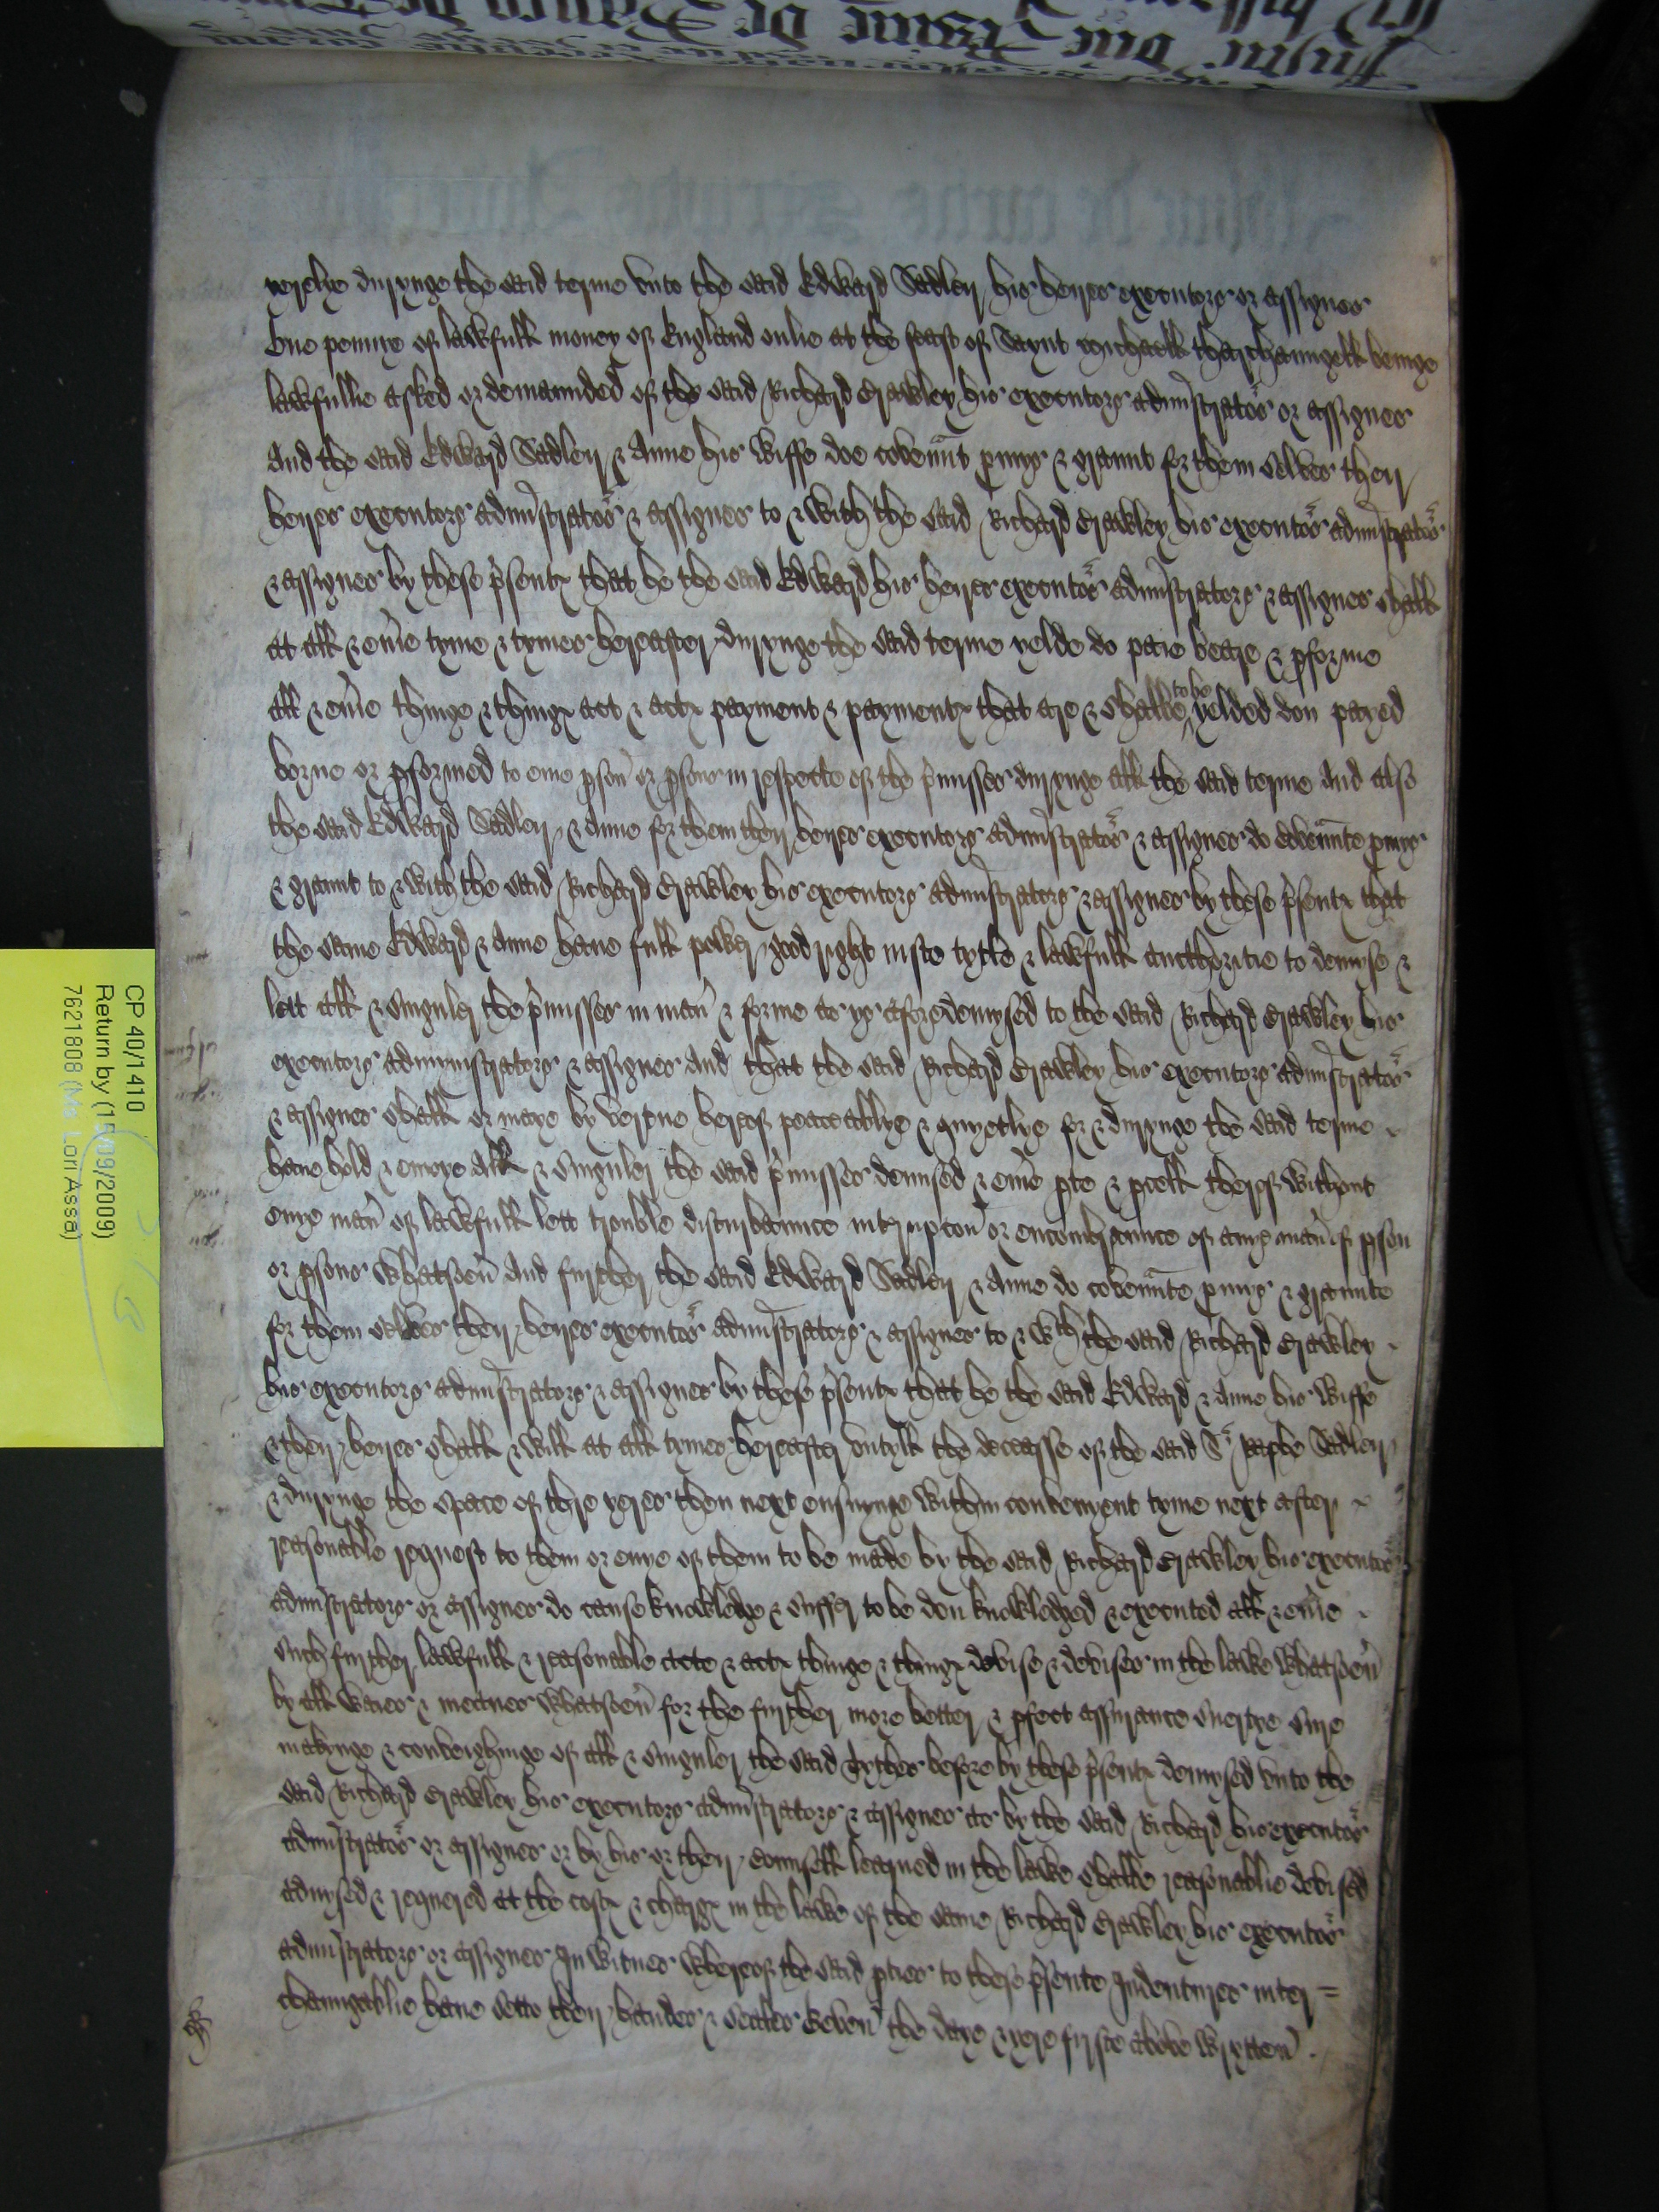 yerelye durynge the said terme unto the said Edward Sadleir his heires executors or assignes
One pennye of lawfull money of England onlie at the feast of Saynt Michaell tharchaungell beinge
lawfullie asked or demaunded of the said Richard Crawley his executors administrators or assignes
And the said Edward Sadleir & Anne his wiffe doe covennt promys & graunt for them selves their
heires executors administrators & assignes to & with the said Richard Crawley his executors administrators
& assignes by these psents that he the said Edward his heires executors administrators & assignes shall
at all & everie tyme & tymes hereafter durynge the said terme yelde do paie beare & pforme
all & everie thinge & things act & acts payment & payments that are & shalbe to be yelded don payed
borne or pformed to enie pson or psons in respecte of the pmisses durynge all the said terme And also
the said Edward Sadleir & Anne for them their heires executors administrators & assignes do covennte promys
& graunt to & with the said Richard Crawley his executors administrators & assignes by these psents that
the same Edward & Anne have full power good right juste tytle & lawfull aucthoritie to demyse &
lett all & singuler the pmisses in maner & forme as ys afore demysed to the said Richard Crawley his
executors admynystrators & assignes And that the said Richard Crawley his executors administrators
& assignes shall or maye by vertue hereof peaceablye & quyetlye for & durynge the said terme
have hold & enioye all & singuler the said pmisses demised & everie pte & pcell thereof without
enye maner of lawfull lett trouble disturbaunce interupcon or encombraunce of anye maner of pson
or psons whatsoever And further the said Edward Sadleir & Anne do covennte promys & graunte
for them selves their heires executors administrators & assignes to & wth the said Richard Crawley
his executors administrators & assignes by these psents that he the said Edward & Anne his wiffe
& their heires shall & will at all tymes hereafter untyll the deceasse of the said Sr Raphe Sadleir
& durynge the space of thre yeres then next ensuynge within convenyent tyme next after
reasonable request to them or enye of them to be made by the said Richard Crawley his executors
administrators or assignes do cause knowledge & suffer to be don knowledged & executed all & everie
such further lawfull & reasonable acte & acts thinge & things devise & devises in the lawe whatsoever
by all waies & meanes whatsoever for the further more better & pfect assurance suertye sure
makinge & conveighinge of all & singuler the said tythes before by these psents demysed unto the
said Richard Crawley his executors administrators & assignes as by the said Richard his executors
administrators or assignes or by his or their counsell learned in the lawe shalbe reasonablie devised
advysed & requered at the costs & chargs in the lawe of the same Richard Crawley his executors
administrators or assignes In witnes whereof the said pties to these psente Indentures inter =
chaungablie have sette their handes & seales Geven the daye & yere firste above wrytten

CP 40/1410
Return by (15/09/2009)
7621808 (Ms Lori Assa)